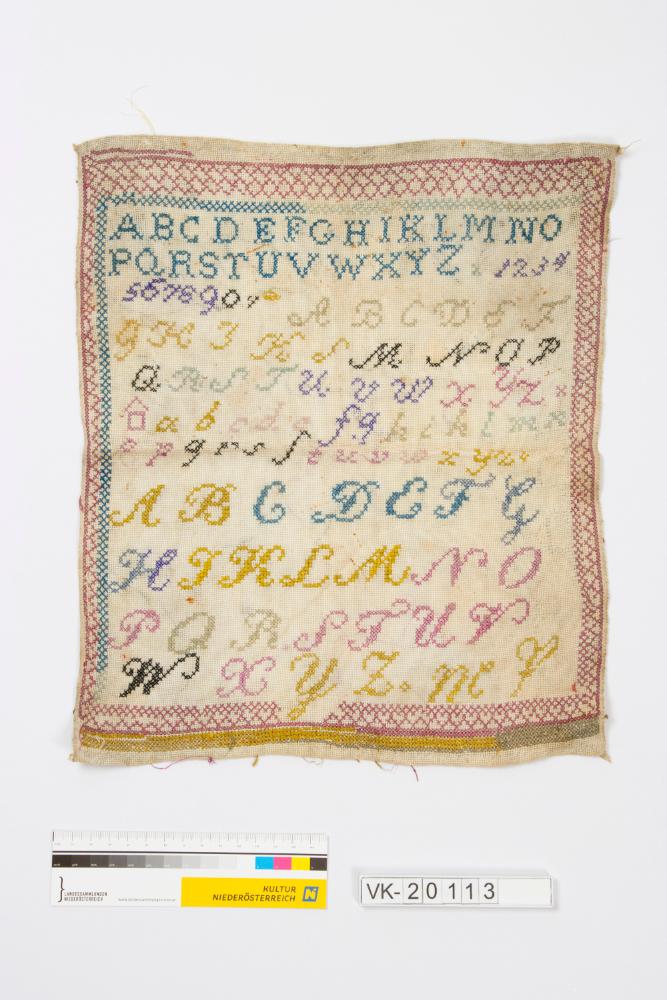 ABCDEFGHIKLMNO
PQRSTUVWXYZ 1234
567890
A B C D E F
G H I K L M. N O P
Q. R S T U. V W X Y Z
a b c d e f g h i k l m n
o p q r s ſ t u v w x y z
A B C D E F G
H I K L M N O
P Q R. S T U V
W X Y Z. M P
LANDESSAMMLUNGEN
NIEDERÖSTERREICH
KULTUR
NIEDERÖSTERREICH
VK-20113